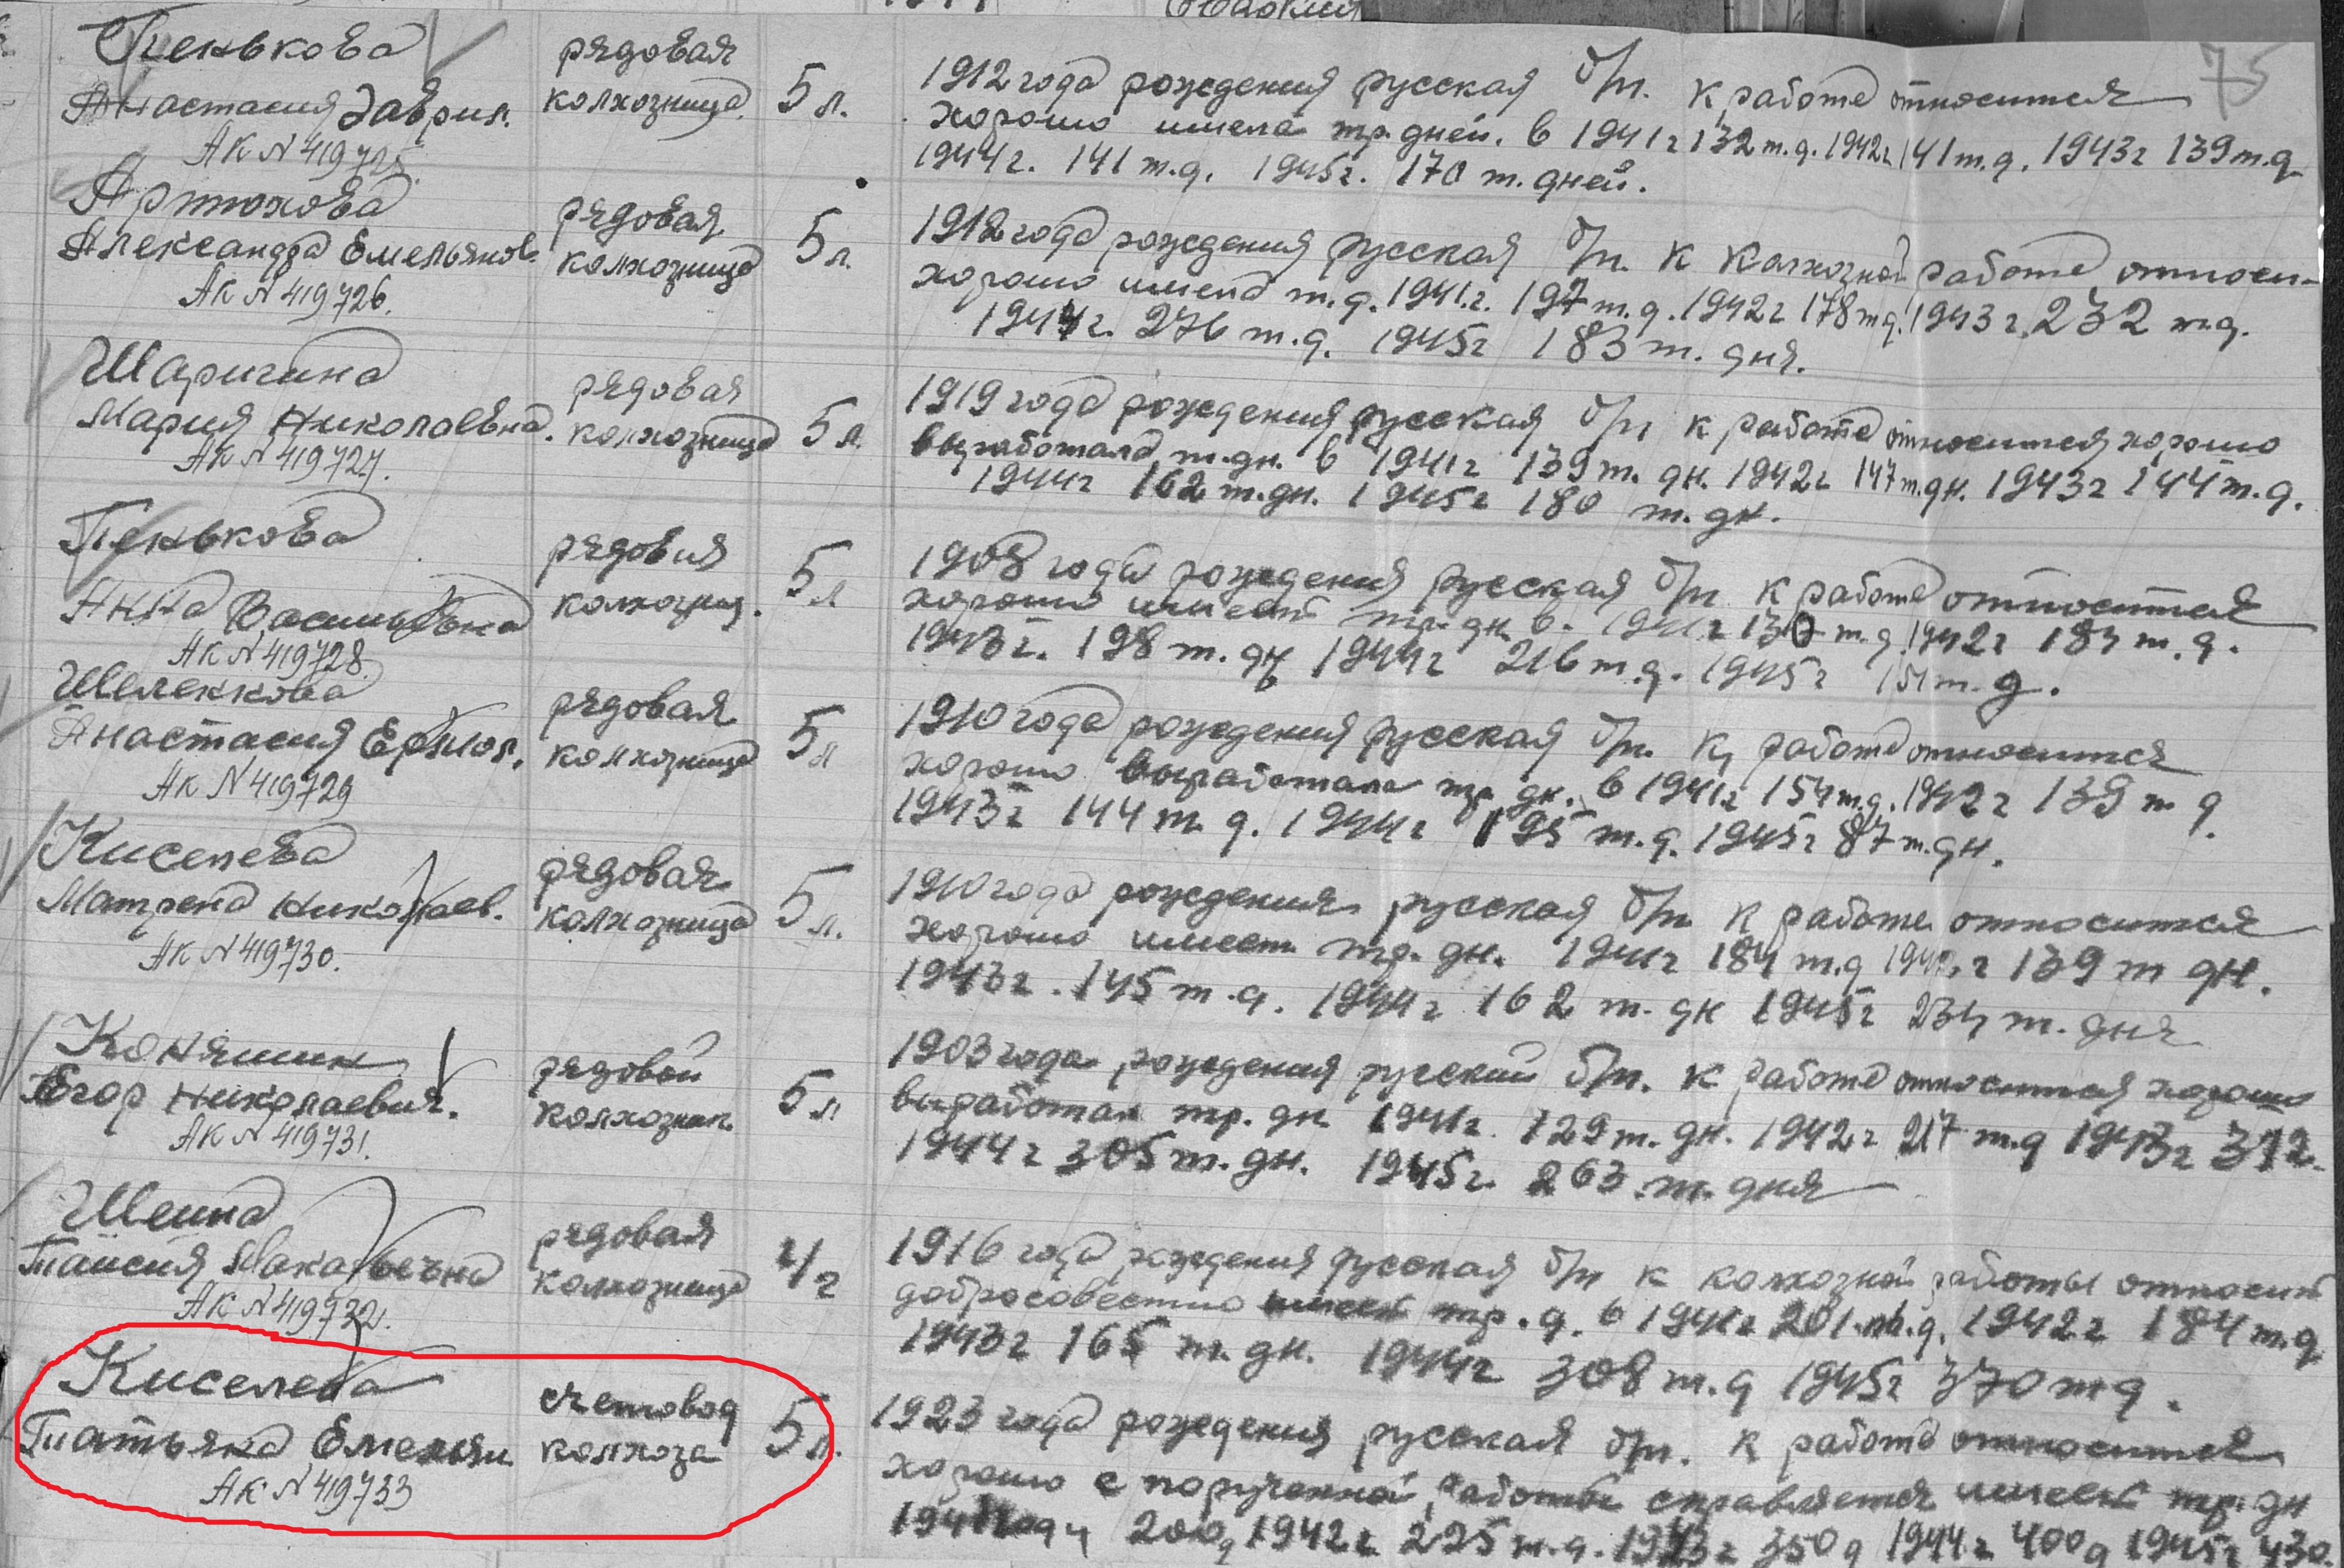 75
Пенькова рядовая
Анастасия Гаврил. колхозница 5 л. 1912 года рождения русская б/п. к работе относится
АК N 419725. хорошо имела тр. дней. в 1941 г 132 т.д. 1942 г 141 т.д. 1943 г 139 т.д
1944 г. 141 т.д. 1945 г. 170 т. дней.
Артюхова рядовая
Александра Емельянов. колхозница 5 л. 1912 года рождения русская б/п. к колхозной работе относи-
АК N 419726. хорошо имела т.д. 1941 г. 197 т.д. 1942 г 178 т.д. 1943 г. 232 т.д.
1944 г. 276 т.д. 1945 г 183 т. дня.
Шаригина рядовая
Мария Николаевна. колхозница 5 л. 1919 года рождения русская б/п к работе относится хорошо
АК N 419727. выработала т.дн. в 1941 г 139 т. дн. 1942 г 147 т.дн. 1943 г 144 т.д.
1944 г 162 т.дн. 1945 г 180 т. дн.
Пенькова рядовая
Анна Васильевна колхозниц. 5 л 1908 года рождения русская б/п к работе относится
АК N 419728. хорошо имеет тр. дн в. 1941 г 130 т.д 1942 г 184 т.д.
1943 г. 198 т. дн 1944 г 216 т.д. 1945 г 151 т.д.
Шеленкова рядовая
Анастасия Ермол. колхозница 5 л 1910 года рождения русская б/п. к работе относится
АК N 419729 хорошо выработала тр. дн. в 1941 г 154 т.д. 1942 г 139 т д
1943 г 144 т.д. 1944 г 195 т.д. 1945 г 87 т.дн.
Киселева рядовая
Матрена Николаев. колхозница 5 л. 1910 года рождения русская б/п к работе относится
АК N 419730. хорошо имеет тр. дн. 1941 г 184 т.д 1942 г 139 т дн.
1943 г. 145 т.д. 1944 г 162 т. дн 1945 г 234 т. дня
Коняшин рядовой
Егор Николаевич. колхозник. 5 л 1903 года рождения русский б/п. к работе относится хорошо
АК N 419731. выработал тр. дн 1941 г. 129 т. дн. 1942 г 217 т.д 1943 г 312.
1944 г 305 т. дн. 1945 г. 263 т. дня
Шеина рядовая
Таисия Макарьевна колхозница 4/г 1916 года рождения русская б/п к колхозной работы относит
АК N 419732. добросовестно имеет тр. д. в 1941 г 201 т.д. 1942 г 184 т.д
1943 г 165 т. дн. 1944 г 308 т.д 1945 г 370 т д.
Киселева счетовод
Татьяна Емельян колхоза 5 л. 1923 года рождения русская б/п. к работе относится
АК N 419733 хорошо с порученной работой справляется имеет тр. дн
200 д 1942 г 225 т.д. 1943 г 350 д 1944 г 400 д 1945 г 430